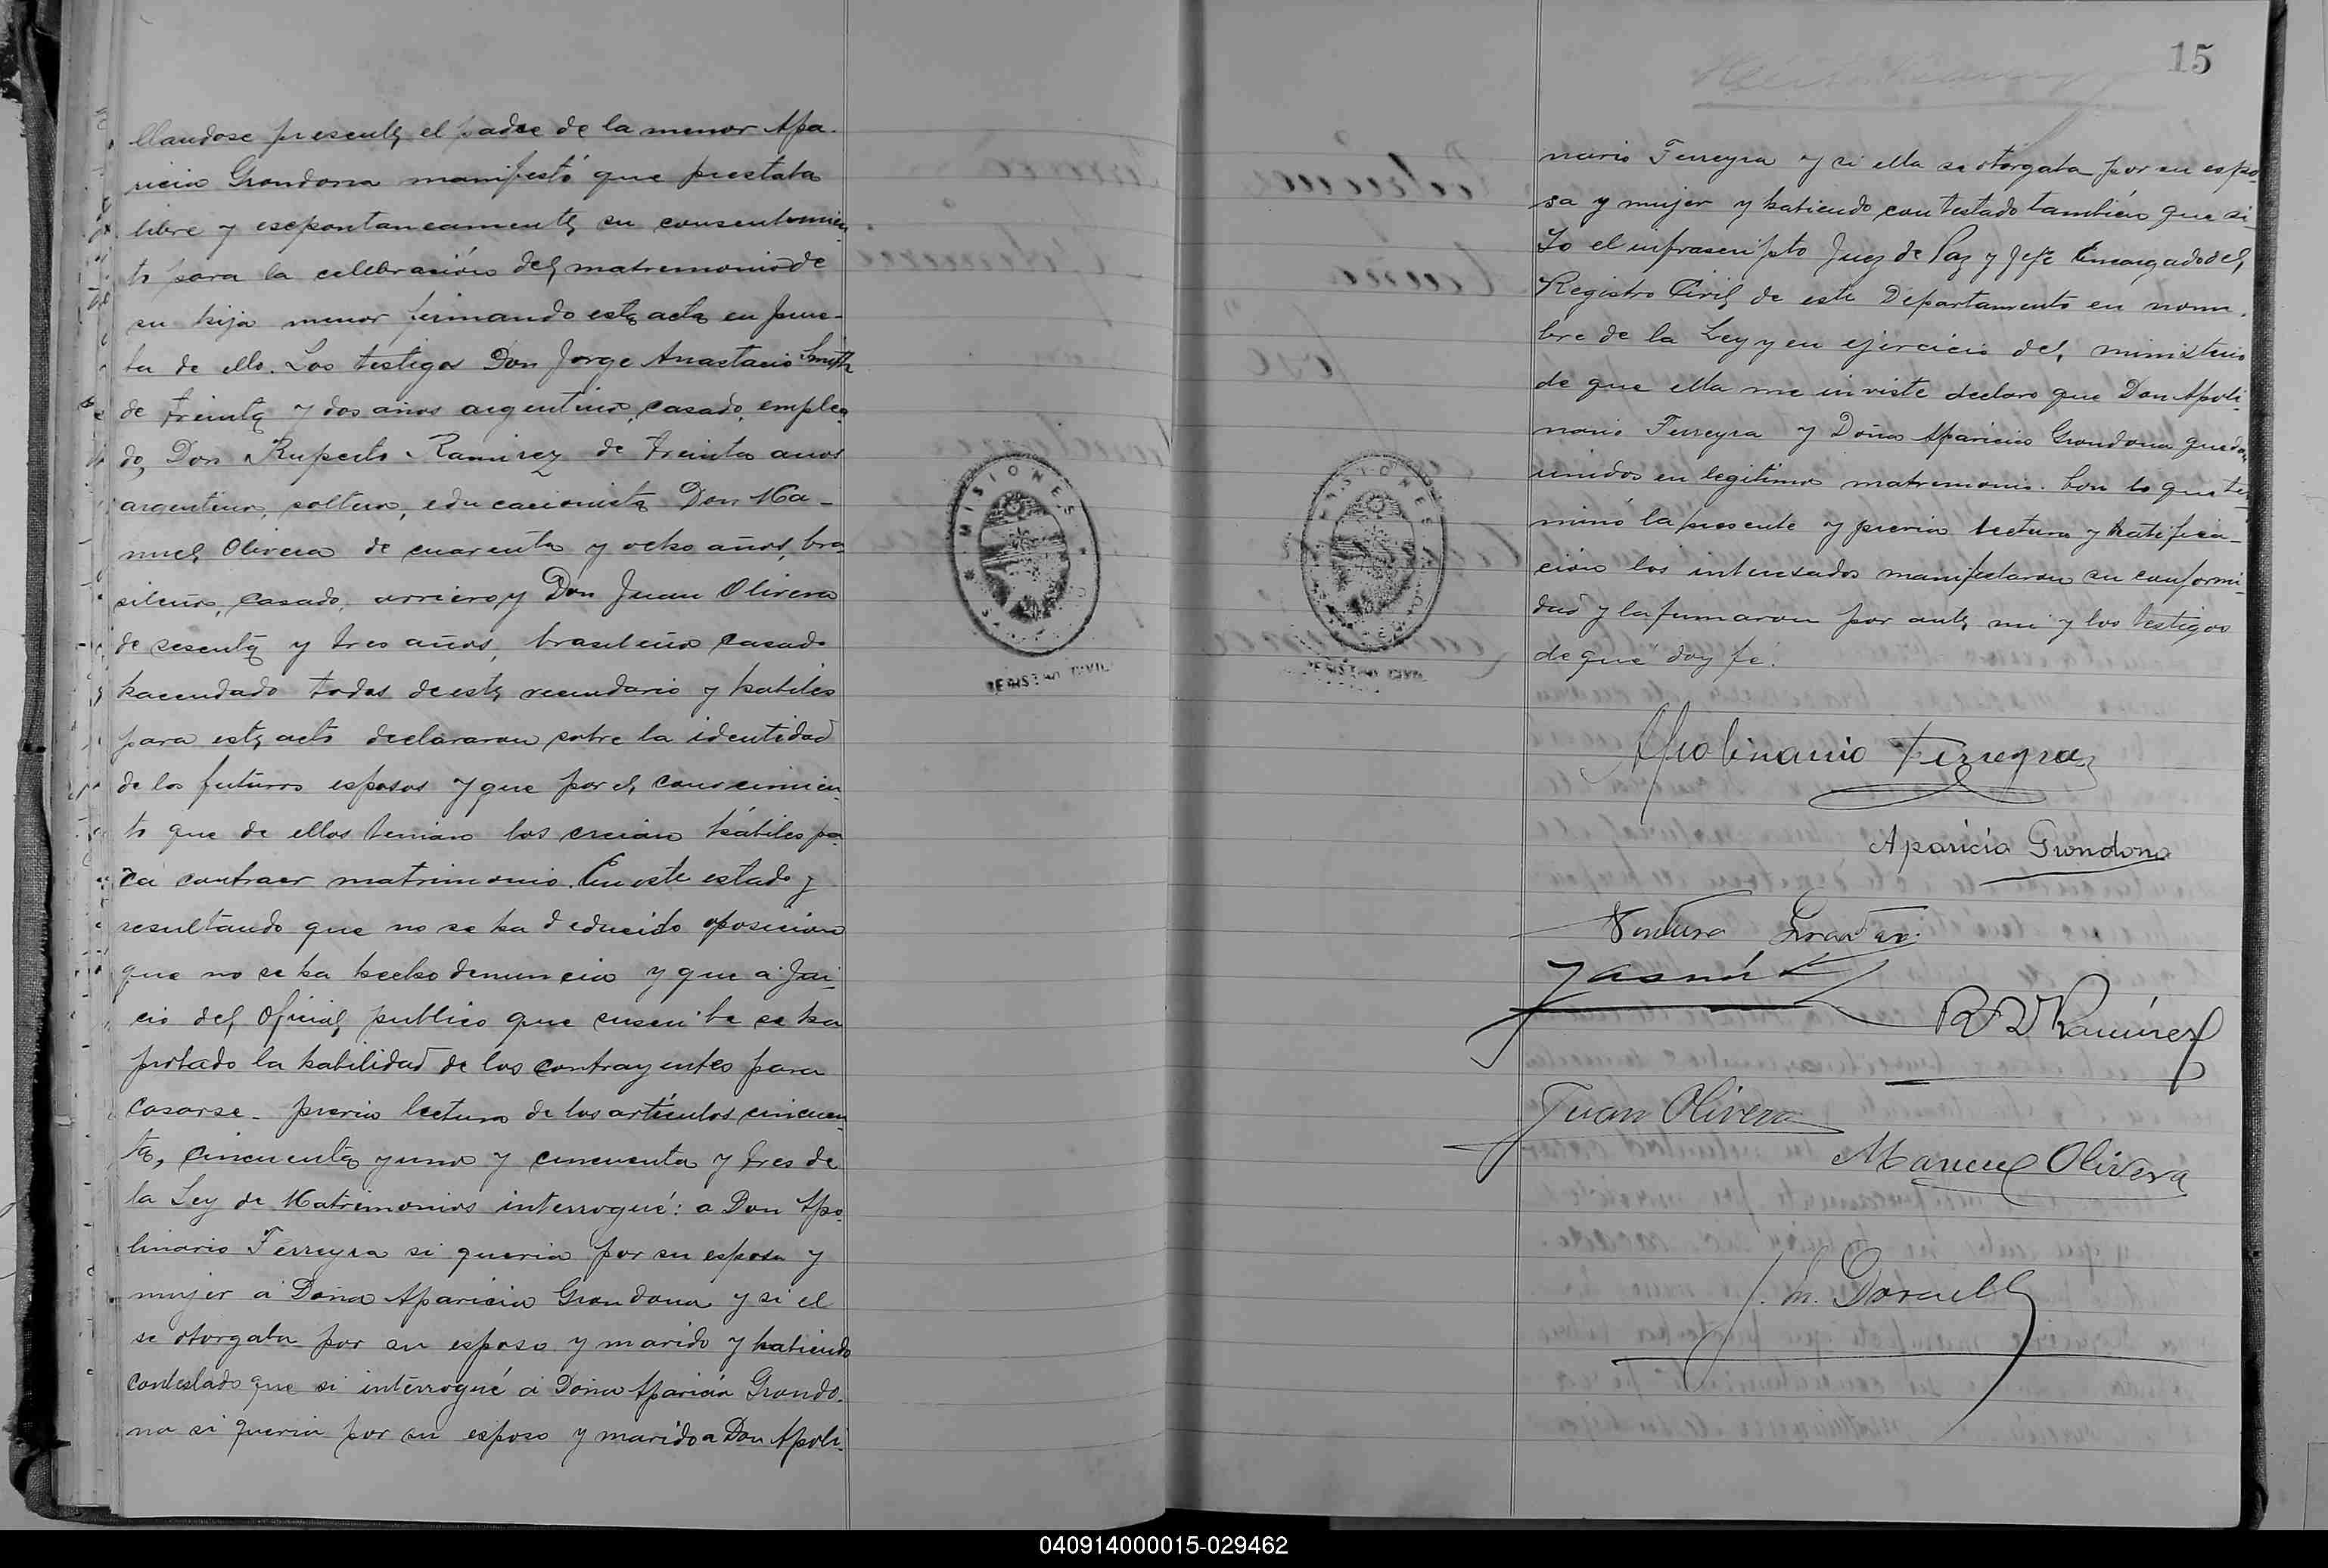 llandose presente el padre de la menor Apa-
ricia Grondona manifestó que prestaba
libre y esepontaneamente su consentimien
to para la celebración del matremonio de
su hija menor firmando este acta en prue-
ba de ello. Los testigos Don Jorge Anastacio Smith
de treinta y dos años argentino, casado, emplea
do, Don Ruperto Ramirez de treinta anos
argentino, soltero, educacionista Don Ma-
nuel Olivera de cuarenta y ocho años, bra
sileño, casado, arriero y Don Juan Olivera
de sesenta y tres años, brasileño casado
hacendado todos de este vecindario y habiles
para este acto declararon sobre la identidad
de los futuros esposos y que por el conocimien
to que de ellos tenian los creian hábiles pa
ra contraer matrimonio. En este estado y
resultando que no se ha deducido oposicion
que no se ha hecho denuncia y que a jui-
cio del Oficial publico que suscribe se ha
probado la habilidad de los contrayentes para
casarse - previa lectura de los artículos cincuen
ta, cincuenta y uno y cincuenta y tres de
la Ley de Matrimonios interrogué: a Don Apo
linario Ferreyra si queria por su esposa y
mujer á Doña Aparicia Grondona y si el
se otorgaba por su esposo y marido y habiendo
contestado que si interrogué á Doña Aparicia Grondo-
na si queria por su esposo y marido a Don Apoli-
MISIONES
REGISTRO CIVIL
15
nario Ferreyra y si ella se otorgaba por su espo
sa y mujer y habiendo contestado también que si-
Yo el infrascripto Juez de Paz y Jefe Encargado del
Registro Civil de este Departamento en nom-
bre de la Ley y en ejercicio del ministerio
de que ella me inviste declaro que Don Apoli-
nario Ferreyra y Doña Aparicia Grondona quedan
unidos en legítimo matremonio. Con lo que ter
minó la presente y previa lectura y ratifica-
ción los interesados manifestaron su conformi-
dad y la firmaron por ante mi y los testigos
de que doy fe.
MISIONES
REGISTRO CIVIL
Apolinario Ferreyra
Aparicia Grondona
Ventura
R Ramírez
Juan Olivera
Manuel Olivera
040914000015-029462